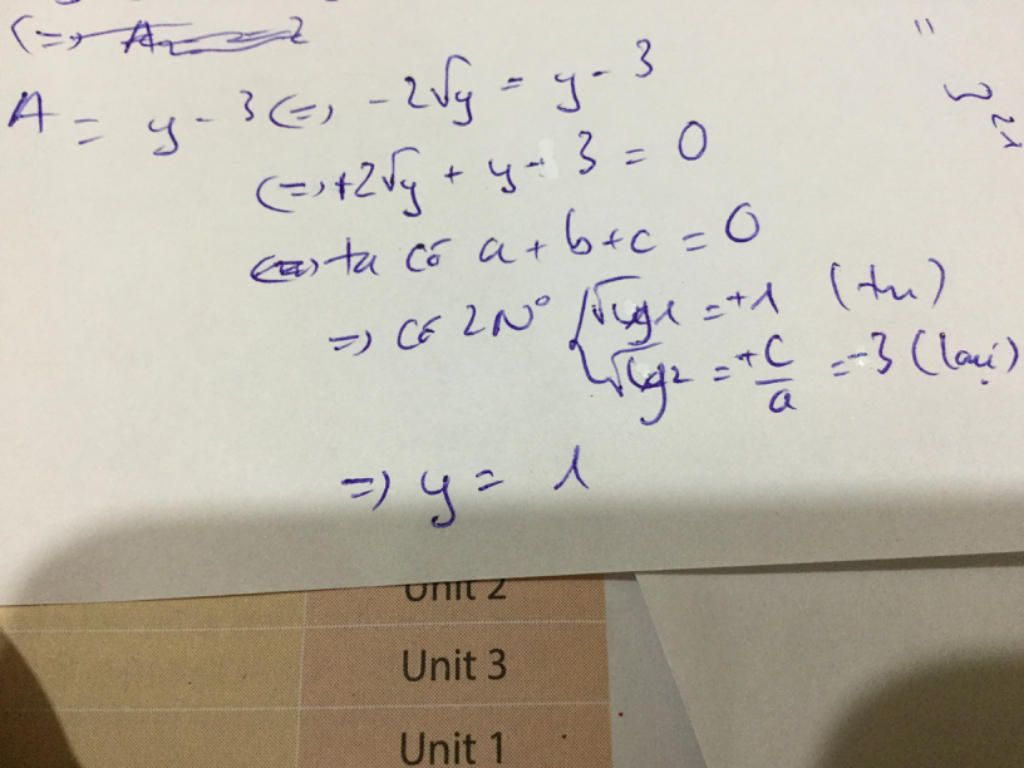 A = y - 3 <=> -2√y = y - 3
<=> +2√y + y - 3 = 0
ta có a + b + c = 0
=> có 2 N° √y1 = +1 (tm)
√y2 = +c/a = -3 (loại)
=> y = 1
Unit 2
Unit 3
Unit 1